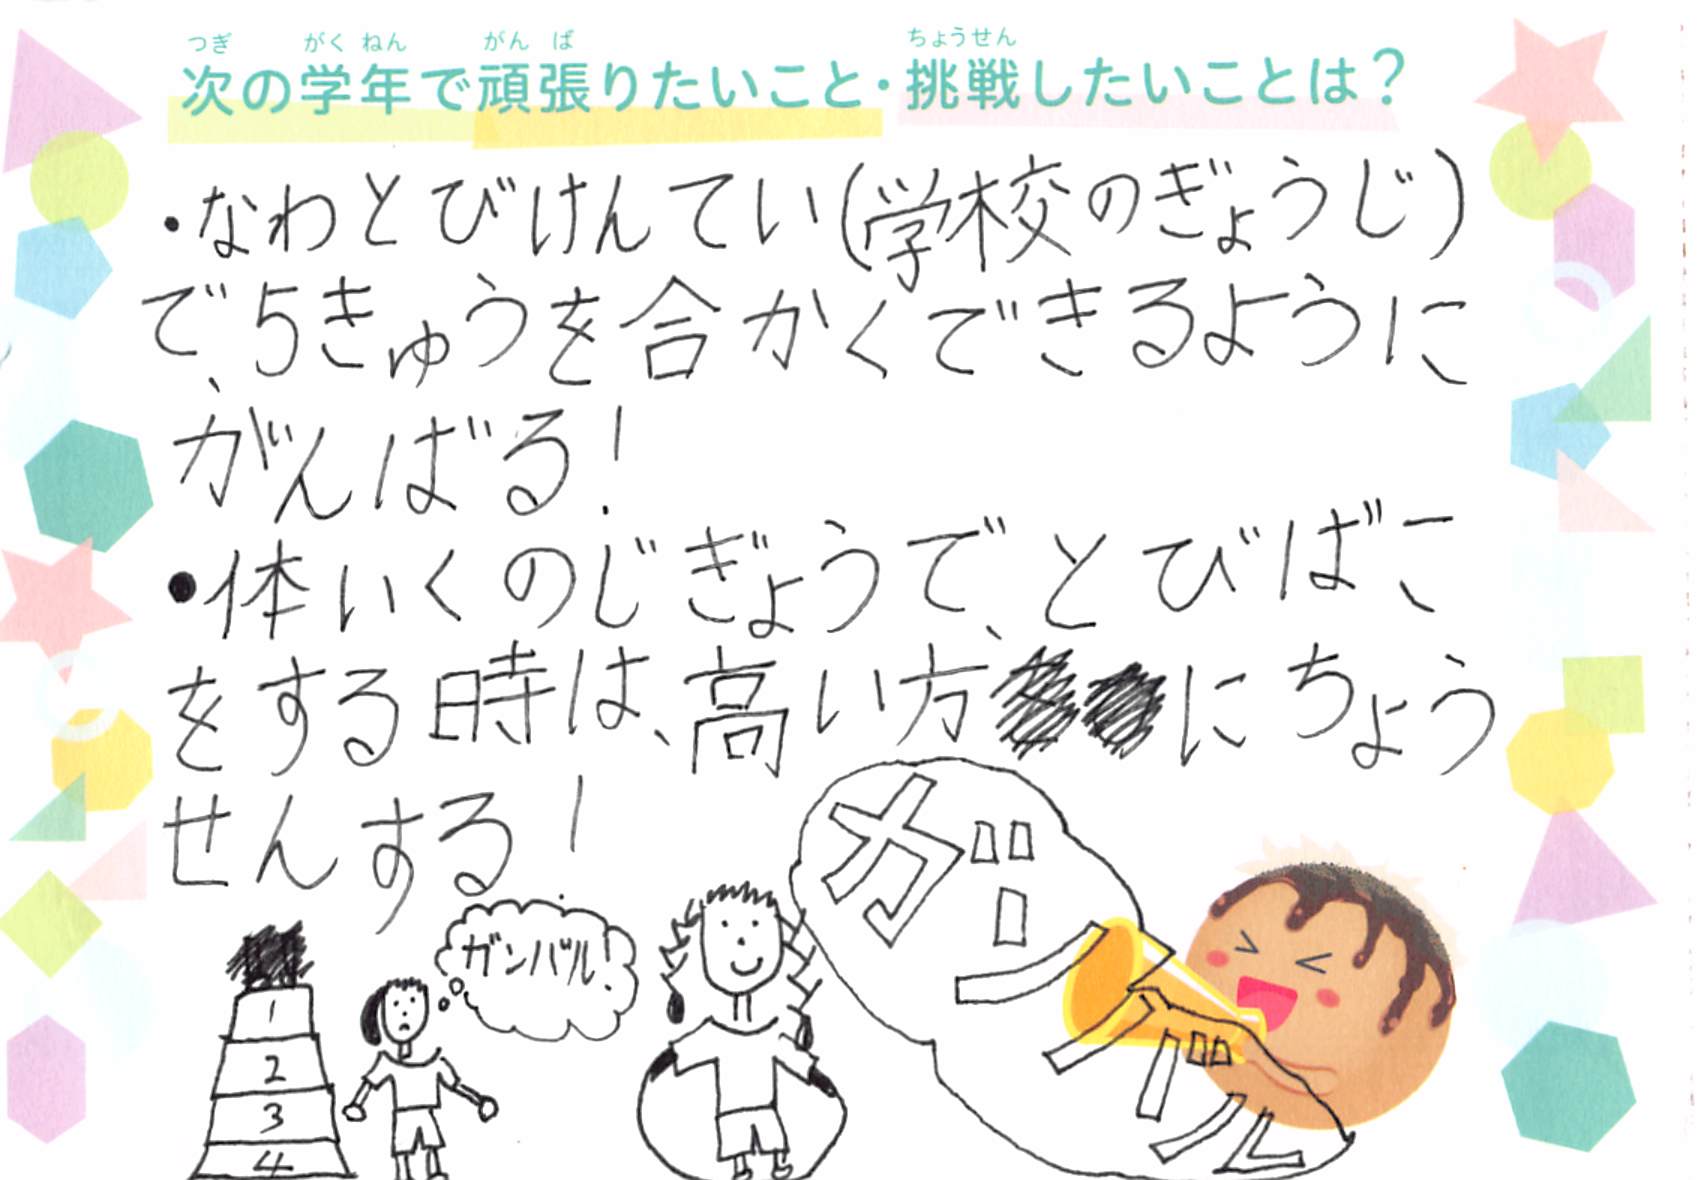 つぎ がく ねん がん ば ちょうせん
次の学年で頑張りたいこと・挑戦したいことは?
・なわとびけんてい(学校のぎょうじ)
で、5きゅうを合かくできるように
がんばる!
・体いくのじぎょうで、とびばこ
をする時は、高い方にちょう
せんする!
ガンバル!
ガンバル
1
2
3
4